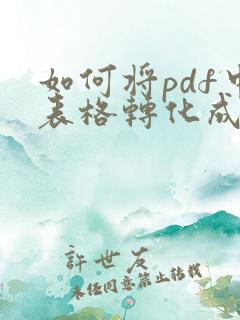 如何将pdf中
表格轉化成
許世友
未经同意禁止转载